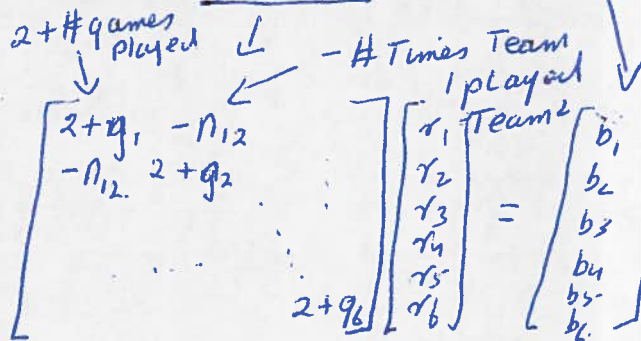 2 + # games played
- # Times Team 1 played Team 2
2+g₁ -n₁₂
-n₁₂ 2+g₂
2+g₆
r₁
r₂
r₃
r₄
r₅
r₆
=
b₁
b₂
b₃
b₄
b₅
b₆